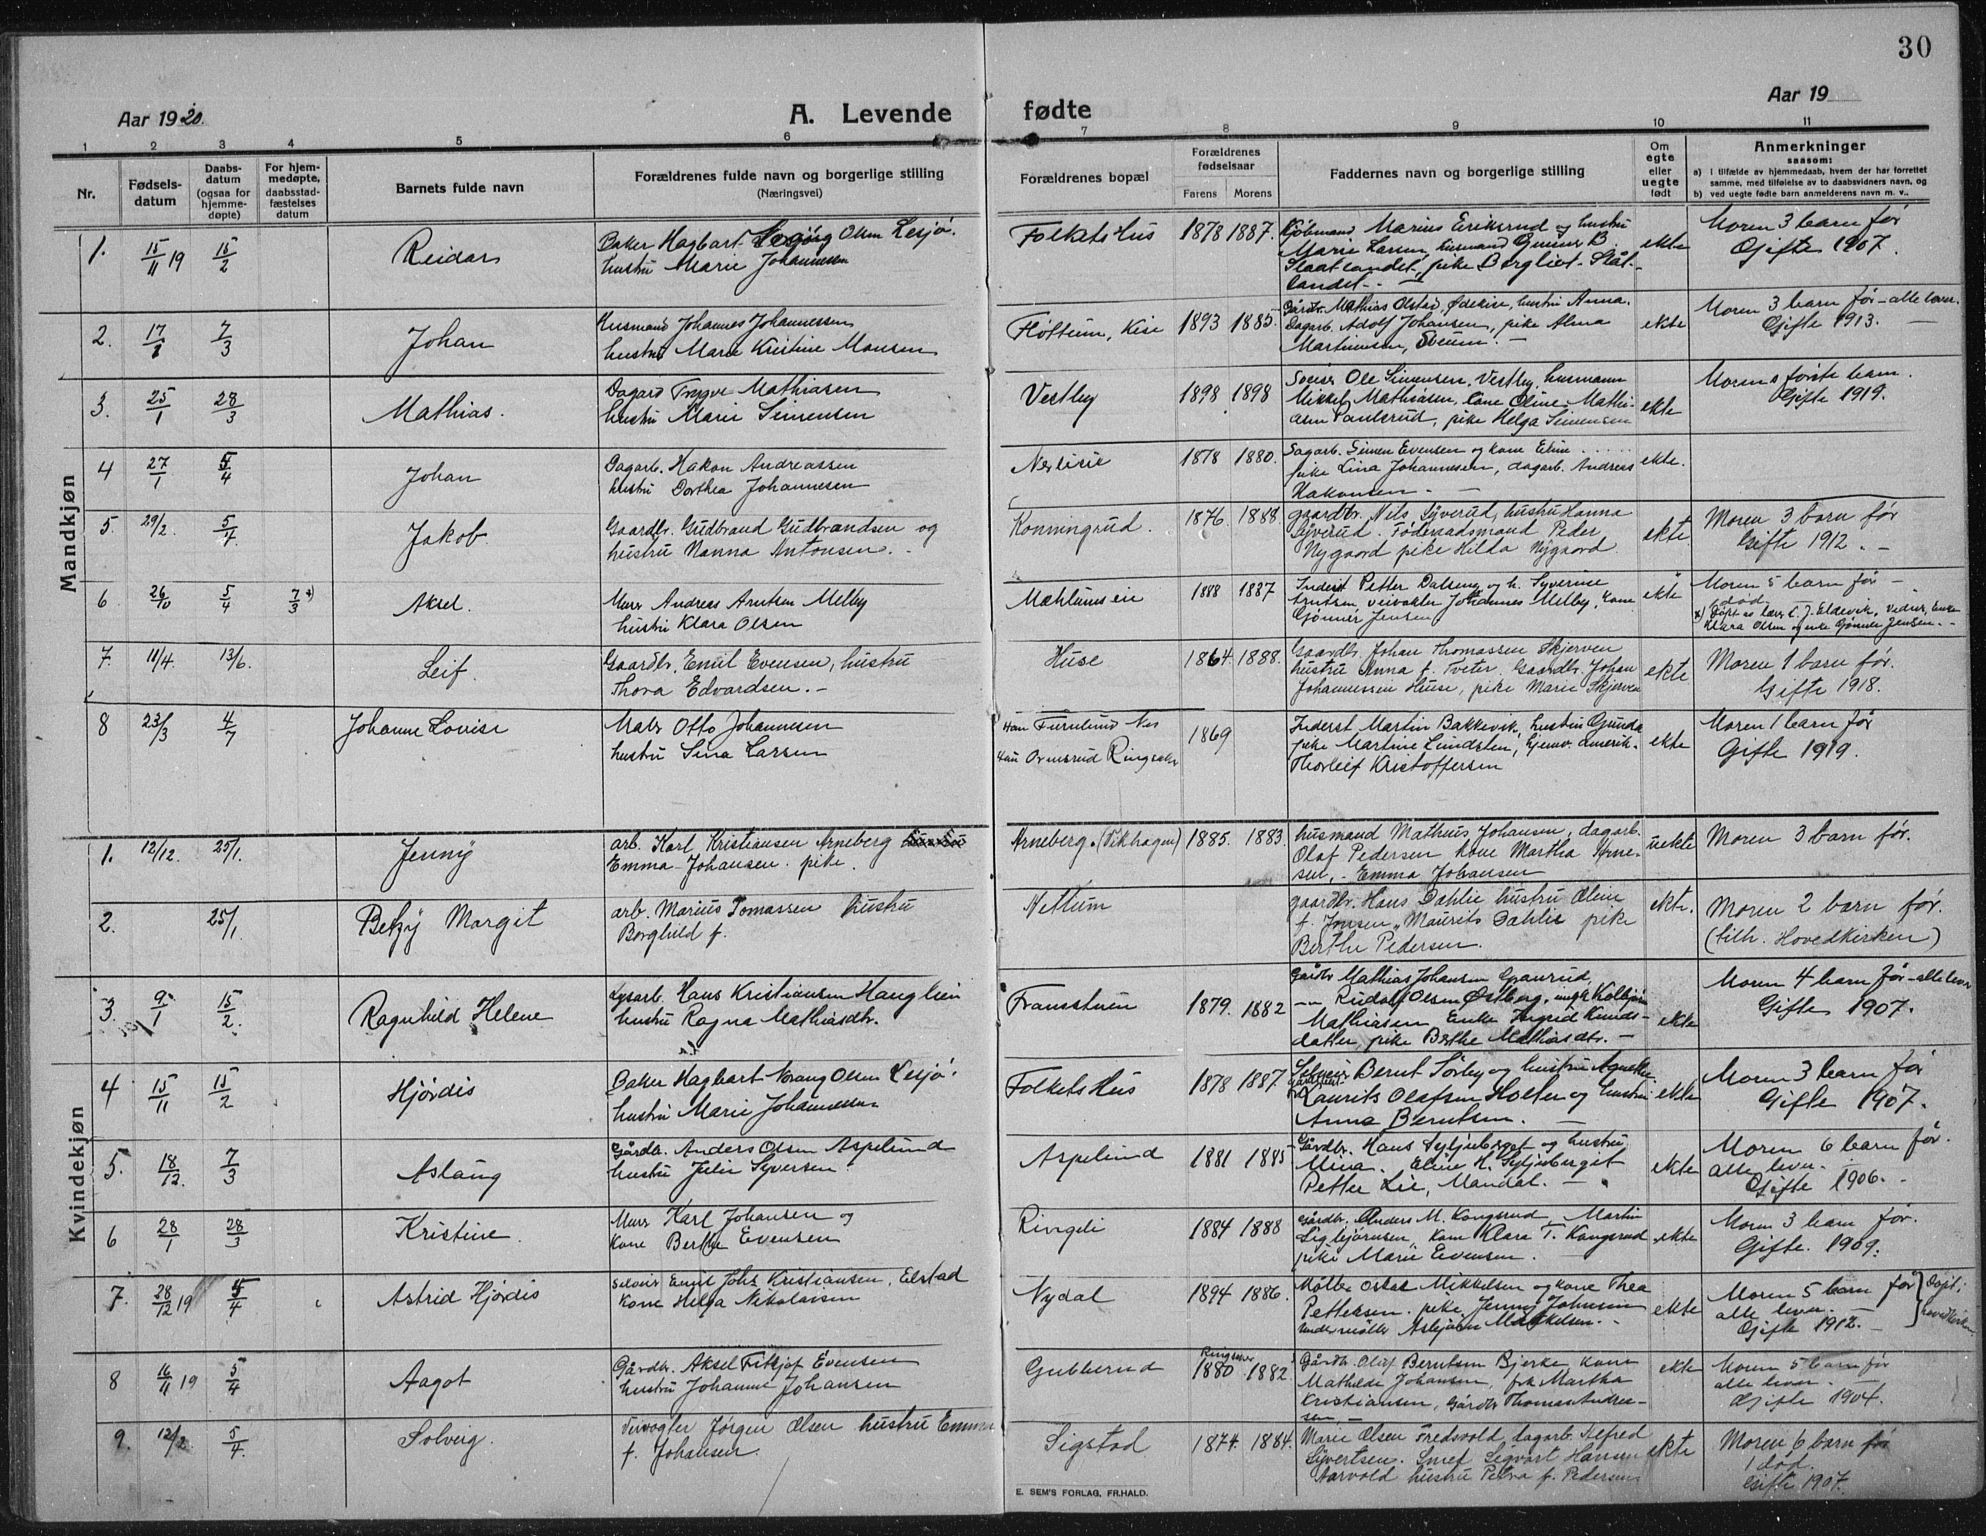 30
Aar 1920.
A. Levende
fødte
Aar 19
1 2 3 4 5 6 7 8 9 10 11
Nr.
Fødsels-
datum
Daabs-
datum
(ogsaa for
hjemme-
døpte)
For hjem-
medøpte,
daabsstad-
fæstelses
datum
Barnets fulde navn
Forældrenes fulde navn og borgerlige stilling
(Næringsvei)
Forældrenes bopæl
Forældrenes
fødselsaar
Farens Morens
Faddernes navn og borgerlige stilling
Om
egte
eller
uegte
født
Anmerkninger
saasom:
a) i tilfælde av hjemmedaab, hvem der har forrettet
samme, med tilføielse av to daabsvidners navn, og
b) ved uegte fødte barn anmelderens navn m. v..
Mandkjøn
1. 15/11 19 15/2 Reidar
Baker Hagbart Olsen Lesjø.
hustru Marie Johannesen
Folkets Hus 1878 1887.
Kjøbmand Marius Eriksrud og hustru
Marie Larsen, husmand Gunner B.
Slaatlandet, pike Bergliot Slåt-
landet. —
ekte
Moren 3 barn før
Gifte 1907.
2. 17/1 7/3 Johan
Husmand Johannes Johannessen
hustru Marie Kristine Monsen
Fløttum, Kise 1893 1885
Gårdbr. Mathias Olstad, Ødekise, hustru Anna.
Dagarb. Adolf Johansen, pike Alma
Martinsen, Sveum. —
ekte
Moren 3 barn før - alle lever.
Gifte 1913. —
3. 25/1 28/3 Mathias.
Dagarb Trygve Mathiasen
hustru Marie Simensen
Vestby 1898 1898
Sveiser Ole Simensen, Vestby, husmann
Mikkel Mathiasen, kone Oline Mathi-
asen Paulsrud, pike Helga Simensen
ekte
Morens første barn.
Gifte 1919.
4 27/1 5/4 Johan
Dagarb. Hakon Andreassen
hustru Dorthea Johannesen
Nerlisie 1878 1880.
Dagarb. Simen Evensen og kone Eline
pike Lina Johannesen, dagarb. Andreas
Hakonsen. —
ekte.
5 29/2. 5/4 Jakob.
Gaardbr. Gudbrand Gudbrandsen og
hustru Nanna Antonsen. -
Konningrud. 1876 1888
gaardbr. Nils Syverud, hustru Hanna
Syverud. Føderaadsmand Peder
Nygaard pike Hilda Nygaard
ekte.
Moren 3 barn før
Gifte 1912. -
6 5/4 7/3 x) Aksel.
Murer Andreas Arntsen Melby
hustru Klara Olsen
Mæhlumseie 1888 1887
Inderst Petter Dalseng og h. Syverine
Arntsen, veivokter Johannes Melby, kone
Gønner Jensen
ekte
Moren 5 barn før -
1 død.
x) Døpt av lærer C. J. Eldevik. Vidner, Enke
Klara Olsen og enke Gønner Jensen. -
7. 11/4. 13/6. Leif.
Gaardbr. Emil Evensen, hustru
Thora Edvardsen. -
Huse 1864. 1888.
Gaardbr. Johan Thomassen Skjerven
hustru Anna f. Tveter, Gaardbr Johan
Johannessen Huse, pike Marie Skjerven
ekte
Moren 1 barn før.
Gifte 1918.
8 23/3 4/7 Johanne Lovise
Maler Otto Johannesen
hustru Sina Larsen
Han Furulund Nes
Hun Ormsrud Ringsaker
1869
Inderst Martin Bakkevik, hustru Gunda
pike Martine Lundsten, hjemv. amerik.
Thorleif Kristoffersen
ekte
Moren 1 barn før
Gifte 1919.
Kvindekjøn
1. 12/12. 25/1. Jenny
arb. Karl Kristiansen Arneberg
Emma Johansen. pike.
Arneberg. (Vikhagen) 1885. 1883.
husmand Mathius Johansen, dagarb.
Olaf Pedersen kone Martha Arne-
sen, - Emma Johansen
uekte
Moren 3 barn før.
2. 25/1. Betzy Margit
arb. Marius Tomassen hustru
Borghild f.
Nettum
gaardbr. Hans Dahlie hustru Oline
f. Jonsen, Maurits Dahlie pike
Berthe Pedersen.
ekte.
Moren 2 barn før.
(tilh. Hovedkirken)
3. 9/1 15/2. Ragnhild Helene
Dagarb. Hans Kristiansen Hauglien
hustru Ragna Mathiasdtr.
Framstuen 1879. 1882
Gårdbr Mathias Johansen Granrud,
— Rudolf Olsen Østberg, ungk Kolbjørn
Mathiasen Enke Ingrid Knuds-
datter, pike Berthe Mathiasdtr. —
ekte
Moren 4 barn før - alle lever
Gifte 1907.
4 15/11 15/2 Hjørdis
Baker Hagbart Norang Olsen Lesjø.
hustru Marie Johannesen
Folkets Hus 1878 1887
Sveiser Bernt Sørby og hustru Agnethe
Laurits Olafsen Holter og hustru
Anna Berntsen. —
ekte
Moren 3 barn før
Gifte 1907.
5. 18/12. 7/3 Aslaug
Gårdbr. Anders Olsen Aspelund
hustru Julie Syversen
Aspelund 1881 1885
Gårdbr. Hans Syljuberget og hustru
Mina. Eline H. Syljuberget
Petter Lie, Mandal. —
ekte
Moren 6 barn før.
alle lever.
Gifte 1906. -
6 28/1 28/3 Kristine.
Murer Karl Johansen og
kone Berthe Evensen
Ringeli 1884 1888
Gårdbr. Anders M. Kongsrud, Martin
Sigbjørnsen, kone Klara T. Kongsrud
pike Marie Evensen.
ekte
Moren 3 barn før.
Gifte. 1909.
7. 28/12 19 5/4 Astrid Hjørdis
Sveiser Emil Johs Kristiansen, Eilstad
Kone Helga Nikolaisen
Nydal 1894 1886.
Møller Oskar Mikkelsen og kone Thea
Pettersen. pike Jenny Johansen
undermøller Asbjørn Mikkelsen. -
ekte
Moren 5 barn før
alle lever. -
Gifte 1912. —
Døpt i
hovedkirken
8 16/11 19 5/4 Aagot
Gårdbr. Aksel Fritjof Evensen
hustru Johanne Johansen
Gubberud
Ringsaker
1880 1882
Gårdbr. Olaf Berntsen Bjerke, kone
Mathilde Johansen, frk Martha
Kristiansen, Gårdbr Thomas Andrea-
sen. —
ekte
Moren 5 barn før
alle lever. —
Gifte 1904.
9. 12/2 5/4. Solveig.
Veivogter Jørgen Olsen hustru Emma
f. Johansen.
Sigstad 1874. 1884.
Marie Olsen Fredsvold, dagarb. Alfred
Sivertsen. Smed Sigvart Hansen
Aarvold hustru Petra f. Pedersen
ekte
Moren 6 barn før
1 død.
Gifte 1907.
E. SEM'S FORLAG, FR.HALD.